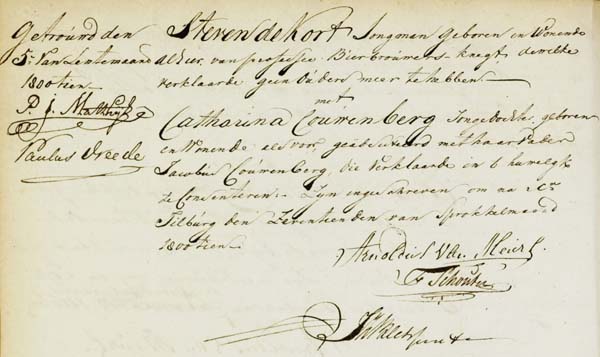 Getrouwd den
5e. Van Lentemaand
1800tien.
P. J.
Paulus Vreede
Steven de Kort Jongman geboren en Wonende
alhier, van professie Bierbrouwers-knegt, dewelke
verklaarde geen Ouders meer te hebben.
met
Catharina Couwenberg Jonge dochter, geboren
en Wonende als vooren, geadsisteerd met haar Vader
Jacobus Couwenberg, die verklaarde in t huwelijk
te Consenteren. Zyn ingeschreven om na
Tilburg den Zeventienden van Sprokkelmaand
1800tien.
Arnoldus Van
F Schouten